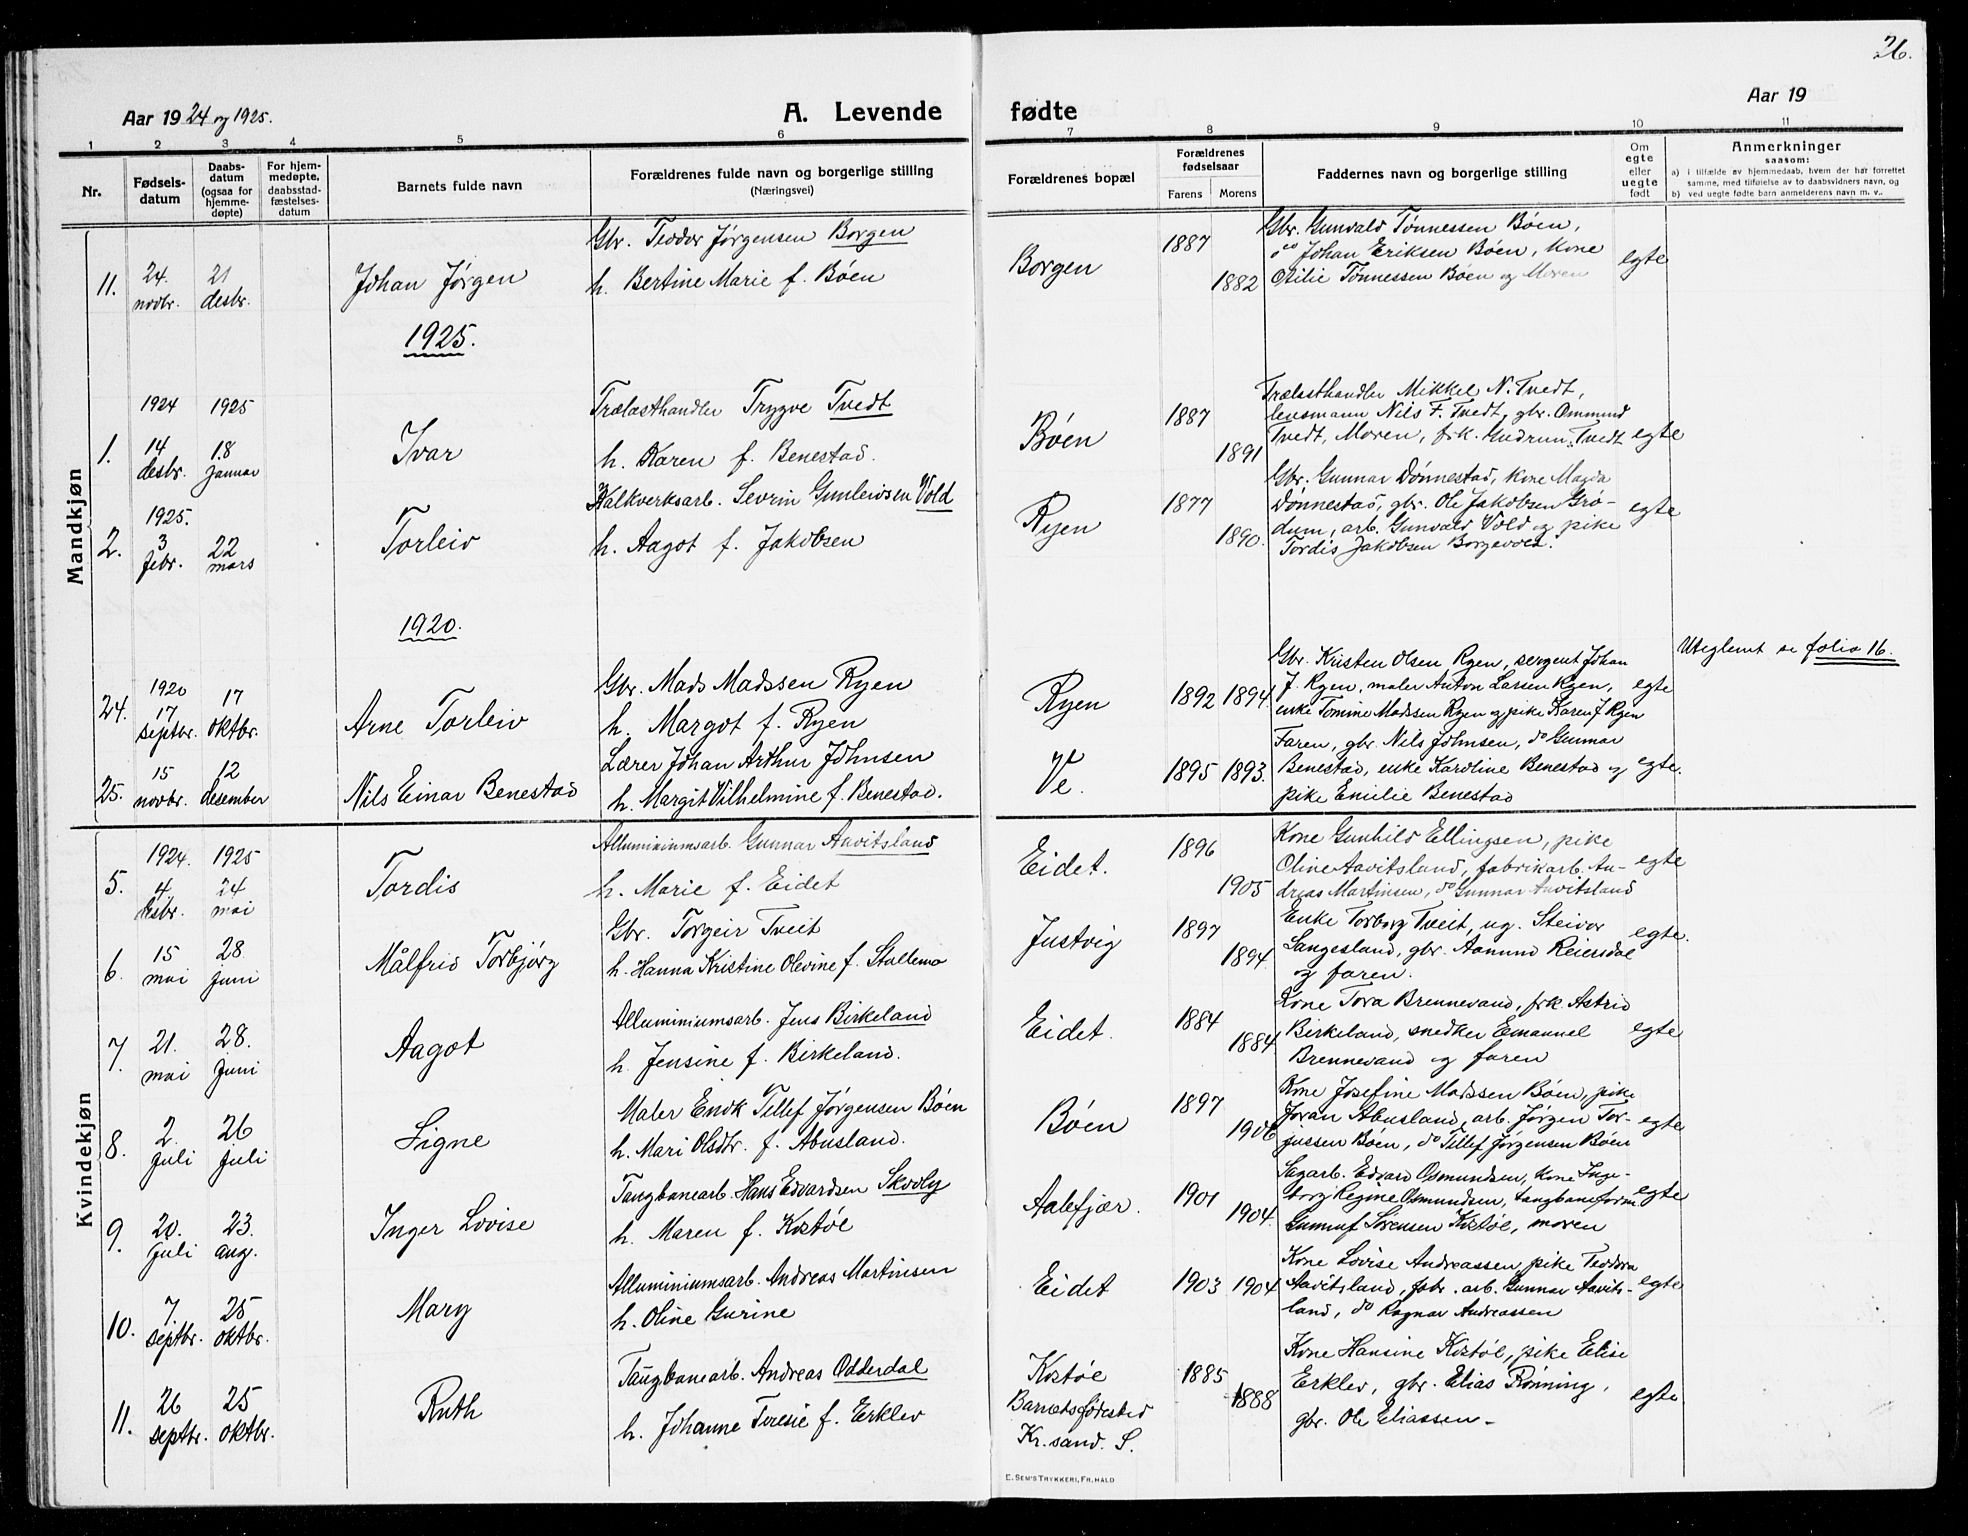 26.
Aar 1924 og 1925.
A. Levende fødte
Aar 19
1 2 3 4 5 6 7 8 9 10 11
Nr.
Fødsels-
datum
Daabs-
datum
(ogsaa for
hjemme-
døpte)
For hjem-
medøpte,
daabsstad-
fæstelses-
datum
Barnets fulde navn
Forældrenes fulde navn og borgerlige stilling
(Næringsvei)
Forældrenes bopæl
Forældrenes
fødselsaar
Farens Morens
Faddernes navn og borgerlige stilling
Om
egte
eller
uegte
født
Anmerkninger
saasom:
a) i tilfælde av hjemmedaab, hvem der har forrettet
samme, med tilføielse av to daabsvidners navn, og
b) ved uegte fødte barn anmelderens navn m. v..
Mandkjøn
11.
24. novbr.
21 desbr.
Johan Jørgen
Gbr. Teodor Jørgensen Borgen
h. Bertine Marie f. Bøen
Borgen
1887
1882
Gbr. Gunvald Tønnessen Bøen,
do Johan Eriksen Bøen, Kone
Otilie Tønnessen Bøen og Moren
egte
1925.
1.
1924
14 desbr.
1925
18 januar
Ivar
Trælasthandler Trygve Tvedt
h. Karen f. Benestad.
Bøen
1887
1891
Trælasthandler Mikkel N. Tvedt,
lensmann Nils F. Tvedt, gbr. Ommund
Tvedt, Moren, frk. Gudrun Tvedt
egte
2.
1925.
3 febr.
22 mars
Torleiv
Kalkverksarb. Sevrin Gunleivsen Vold
h. Aagot f. Jakobsen
Ryen
1877
1890.
Gbr. Gunnar Dønnestad, kone Magda
Dønnestad, gbr. Ole Jakobsen Grø-
dum, arb. Gunvald Vold og pike
Tordis Jakobsen Borgevold.
egte
1920.
24.
1920
17 septbr.
17 oktbr.
Arne Torleiv
Gbr. Mads Madssen Ryen
h. Margot f. Ryen
Ryen
1892 1894
Gbr. Kristen Olsen Ryen, sergent Johan
J. Ryen, maler Anton Larsen Ryen,
enke Tomine Madssen Ryen og pike Karen J Ryen
egte
Uteglemt se folio 16.
25.
15 novbr.
12 desember
Nils Einar Benestad
Lærer Johan Arthur Johnsen
h. Margit Vilhelmine f. Benestad.
Ve.
1895 1893.
Faren, gbr. Nils Johnsen, do Gunnar
Benestad, enke Karoline Benestad og
pike Emilie Benestad
egte.
Kvindekjøn
5.
1924.
4 desbr.
1925
24 mai
Tordis
Alluminiumsarb. Gunnar Aavitsland
h. Marie f. Eidet
Eidet.
1896
1905
Kone Gunhild Ellingsen, pike
Oline Aavitsland, fabrikarb. An-
dreas Martinsen, do Gunnar Aavitsland
egte
6.
15 mai
28 juni
Målfrid Torbjørg
Gbr. Torgeir Tveit
h. Hanna Kristine Olevine f. Stallemo
Justvig
1897
1894
Enke Torborg Tveit, ug. Steivor
Langesland, gbr. Aamund Reiersdal
og faren.
egte.
7.
21. mai
28. juni
Aagot
Alluminiumsarb. Jens Birkeland
h. Jensine f. Birkeland.
Eidet.
1884
1884
Kone Tora Brennevand, frk. Astrid
Birkeland, snedker Emanuel
Brennevand og faren
egte
8.
2. juli
26 juli
Signe
Maler Enok Tellef Jørgensen Bøen
h. Mari Olsdtr. f. Abusland.
Bøen
1897
1906
Kone Josefine Madssen Bøen, pike
Joran Abusland, arb. Jørgen Tor-
jussen Bøen, do Tellef Jørgensen Bøen
egte
9.
20. juli
23. aug.
Inger Lovise
Taugbanearb. Hans Edvardsen Skovly
h. Maren f. Kostøl
Aalefjær.
1901
1904.
Sagarb. Edvard Osmundsen, kone Inge-
borg Regine Osmundsen, taugbaneform.
Gunnuf Sørensen Kostøl, moren
egte
10.
7. septbr.
25 oktbr.
Mary
Alluminiumsarb. Andreas Martinsen
h. Oline Gurine
Eidet
1903 1904
Kone Lovise Andreassen, pike Teodora
Aavitsland, fabr. arb. Gunnar Aavits-
land, do Ragnar Andreassen
egte
11.
26 septbr.
25 oktbr.
Ruth
Taugbanearb. Andreas Odderdal
h. Johanne Teresie f. Erklev
Kostøl
Barnets fødested
Kr.sand. S.
1885
1888
Kone Hansine Kostøl, pike Elise
Erklev, gbr. Elias Rønning,
gbr. Ole Eliassen
egte
E. SEM'S TRYKKERI, FR.HALD